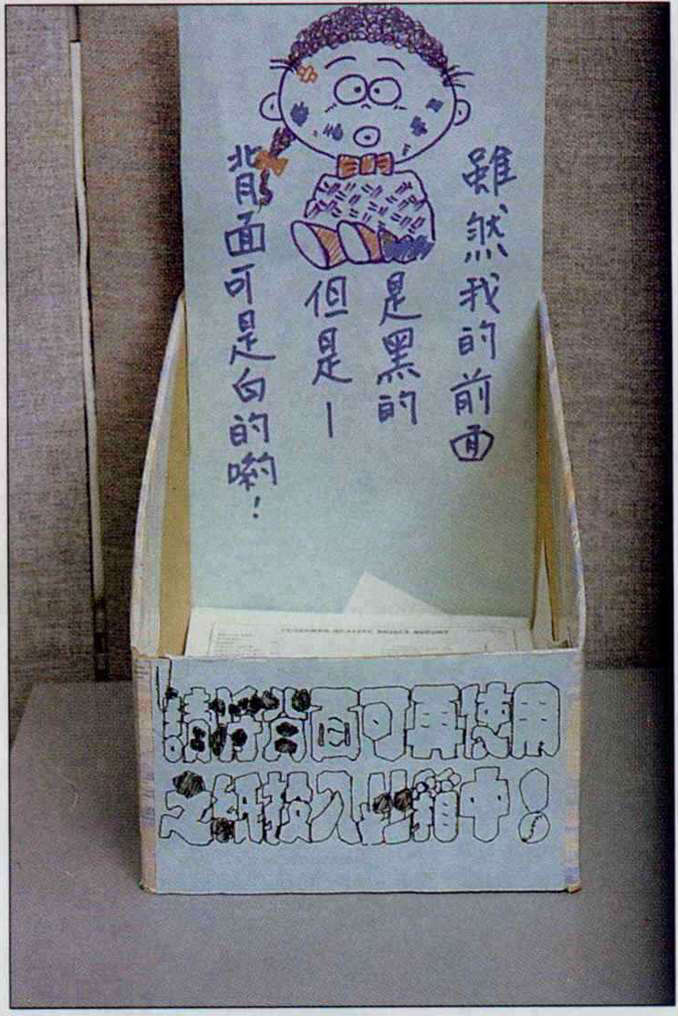 雖然我的前面
是黑的
但是－
背面可是白的喲！
CUSTOMER QUALITY
REPORT
請將背面可再使用
之紙投入此箱中！